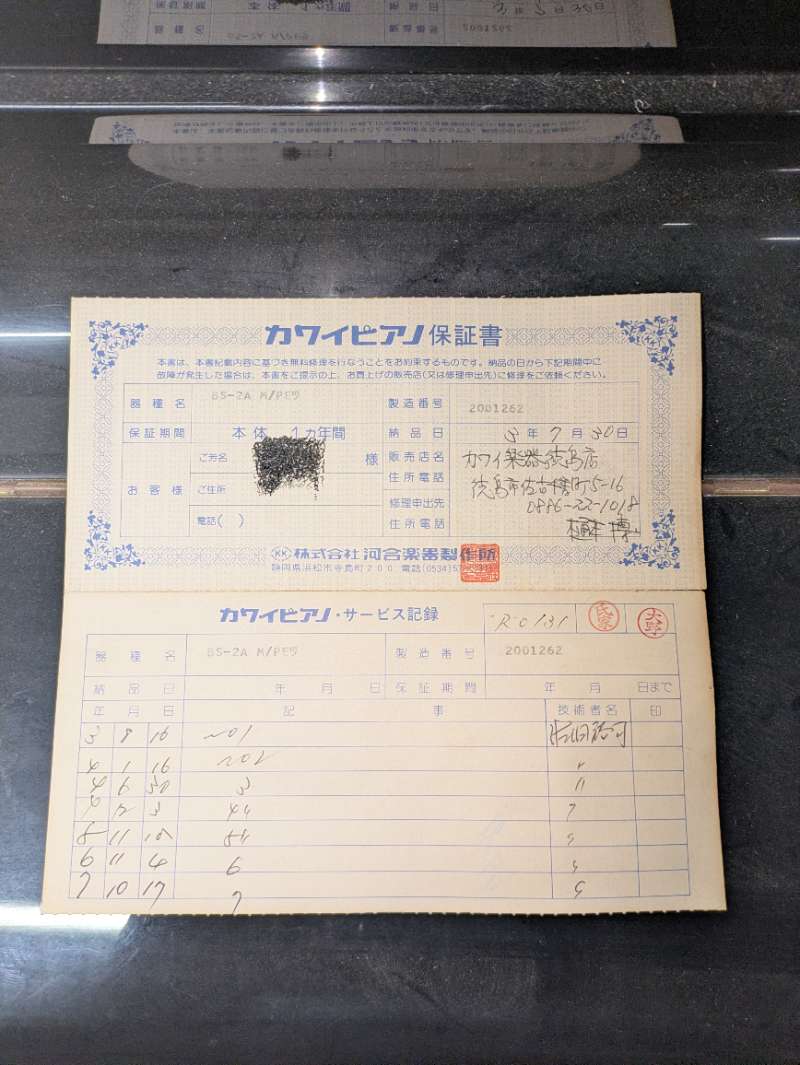 カワイピアノ 保証書
本書は、本書記載内容に基づき無料修理を行なうことをお約束するものです。納品の日から下記期間中に
故障が発生した場合は、本書をご提示の上、お買上げの販売店(又は修理申出先)に修理をご依頼ください。
器種名 BS-2A M/PEウ 製造番号 2001262
保証期間 本体 1ヵ年間 納品日 3年7月30日
お客様 ご芳名 様 販売店名 カワイ楽器徳島店
ご住所 住所電話 徳島市佐古 町5-16
修理申出先 0886-22-1018
電話( ) 住所電話 博
KK 株式会社 河合楽器製作所
静岡県浜松市寺島町200 電話(0534)
カワイピアノ・サービス記録 R0131 氏家 大野
器種名 BS-2A M/PEウ 製造番号 2001262
納品日 年 月 日 保証期間 年 月 日まで
年 月 日 記事 技術者名 印
3 8 16 No1
4 1 16 No2 〃
4 6 30 3 〃
12 3 4
11 10
6 11 4 6
7 10 17 7